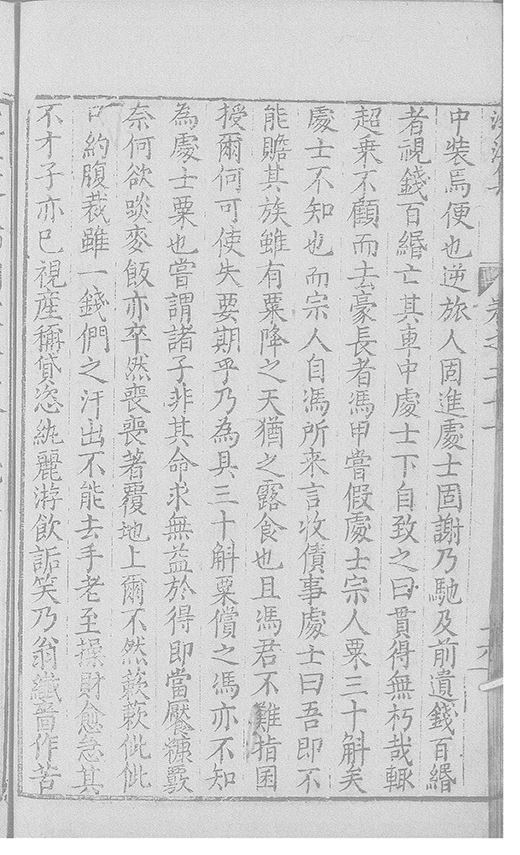 中裝焉便也逆旅人固進處士固謝乃馳及前遺錢百緡
者視錢百緡亡其車中處士下自致之曰貫得無朽哉輙
超乗不顧而去豪長者馮甲嘗假處士宗人粟三十斛矣
處士不知也而宗人自馮所来言收債事處士曰吾即不
能贍其族雖有粟降之天猶之露食也且馮君不難指囷
授爾何可使失要期乎乃為具三十斛粟償之馮亦不知
為處士粟也嘗謂諸子非其命求無益於得即當饜糠覈
奈何欲啖麥飯亦卒然喪喪著覆地上爾不然蔌蔌佌佌
口約腹裁雖一錢們之汗出不能去手老至操財愈急其
不才子亦已視産稱貸恣紈麗游飲詬笑乃翁纖嗇作苦